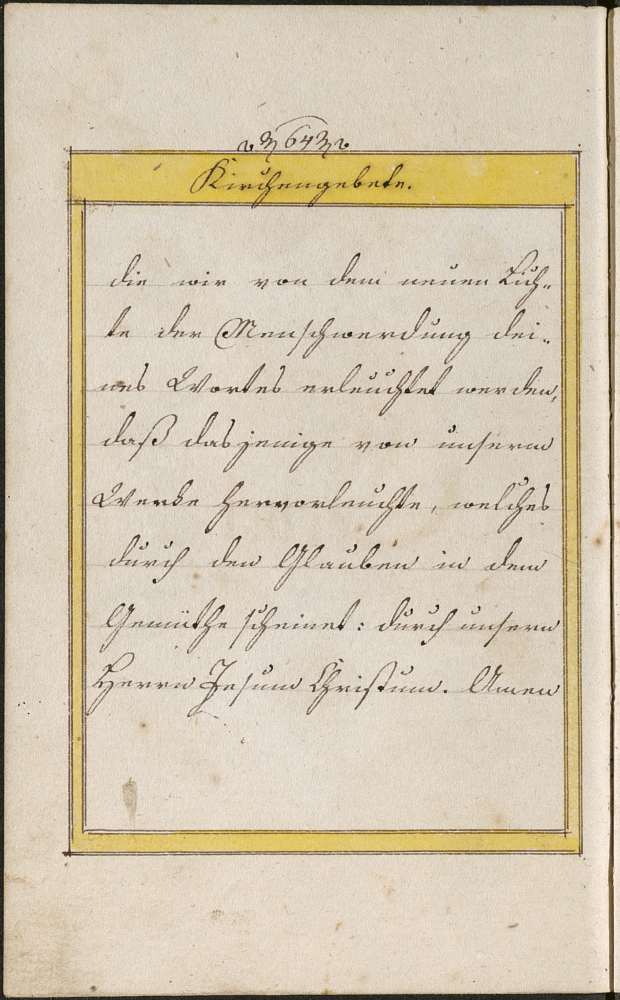 643
Kirchengebete.
die wir von dem neuen Lich-
te der Menschwerdung dei-
nes Wortes erleuchtet werden,
daß dasjenige von unserm
Werke hervorleuchte, welches
durch den Glauben in dem
Gemüthe scheinet: durch unsern
Herrn Jesum Christum. Amen